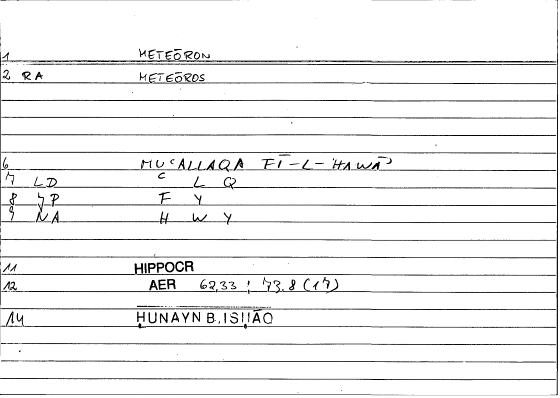 1 METEŌRON
2 RA METEŌROS
6 MUʿALLAQA FĪ-L-HAWĀʾ
7 LD ʿ L Q
8 JP F Y
9 NA H W Y
11 HIPPOCR
12 AER 62,33 ; 73,8 (17)
14 ḤUNAYN B. ISḤĀQ